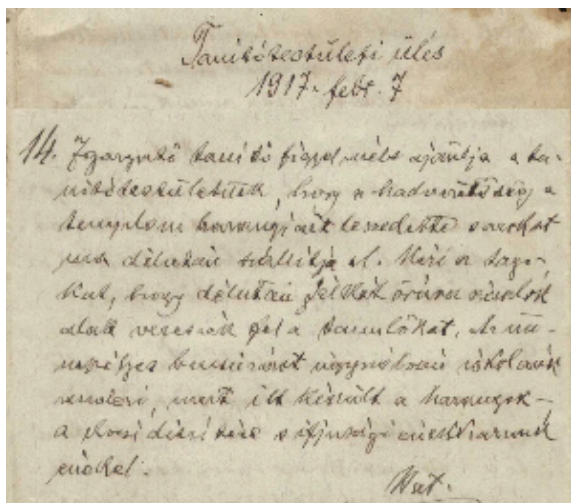 Tanitótestületi ülés
1917. febr. 7
14. Igazgató tanitó figyelmébe ajánlja a ta-
nitótestületnek, hogy a hadvezetőség a
templom harangjait leszedette s azokat
ma délután szállitja el. Kéri a tago-
kat, hogy délután félkét órára zászlók
alatt vezessék fel a tanulókat. Az ün-
nepélyes bucsuzást iskolánk
rendezi, mert itt készült a harangok
a s ifjusági énekkarunk
énekel.